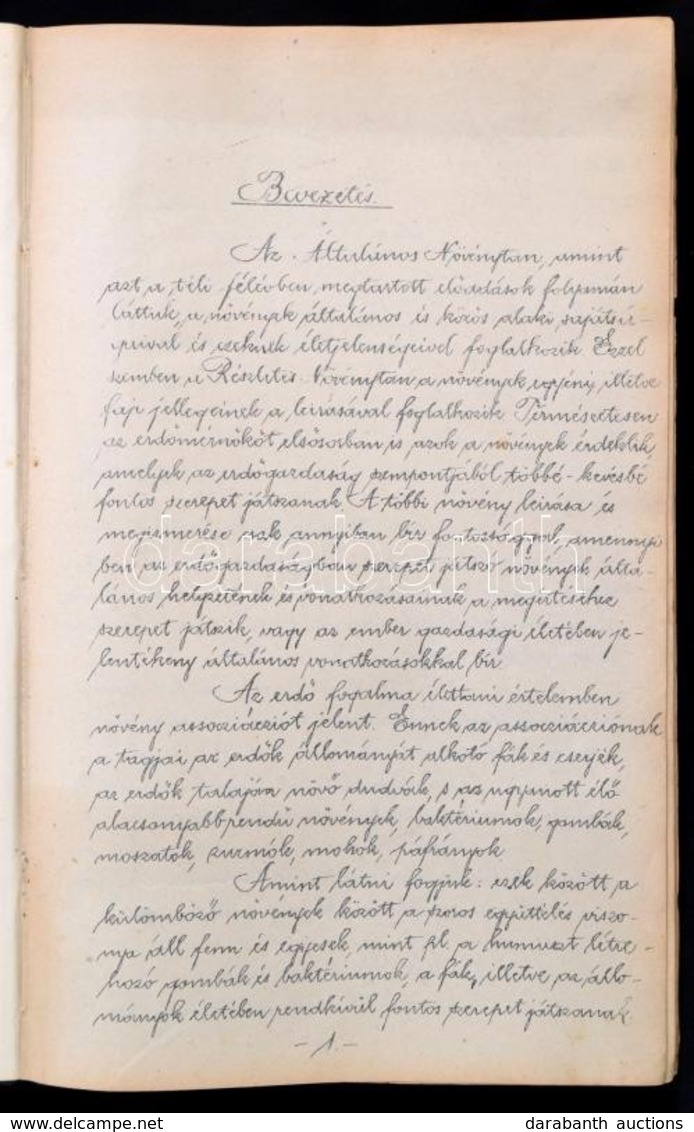 Bevezetés.
Az Általános Növénytan, amint
azt a téli félévben megtartott előadások folyamán
láttuk, a növények általános és közös alaki sajátsá-
gaival és ezeknek életjelenségeivel foglalkozik. Ezzel
szemben a Részletes Növénytan a növények egyéni, illetve
faji jellegeinek a leirásával foglalkozik. Természetesen
az erdőmérnököt elsősorban is azok a növények érdeklik,
amelyek az erdőgazdaság szempontjából többé-kevésbé
fontos szerepet játszanak. A többi növény leirása és
megismerése csak annyiban bir fontossággal, amennyi-
ben az erdőgazdaságban szerepet játszó növények álta-
lános helyzetének és vonatkozásainak a megértéséhez
szerepet játszik, vagy az ember gazdasági életében je-
lentékeny általános vonatkozásokkal bir.
Az erdő fogalma élettani értelemben
növény associácziót jelent. Ennek az associácziónak
a tagjai az erdők állományát alkotó fák és cserjék,
az erdők talaján növő dudvák, s az ugyanott élő
alacsonyabbrendű növények, baktériumok, gombák,
moszatok, zuzmók, mohok, páfrányok.
Amint látni fogjuk: ezek között a
külömböző növények között a szoros együttélés viszo-
nya áll fenn és egyesek, mint pl. a humuszt létre-
hozó gombák és baktériumok, a fák, illetve az állo-
mányok életében rendkívül fontos szerepet játszanak.
-1.-
darabanth
www.delcampe.net
darabanth auctions